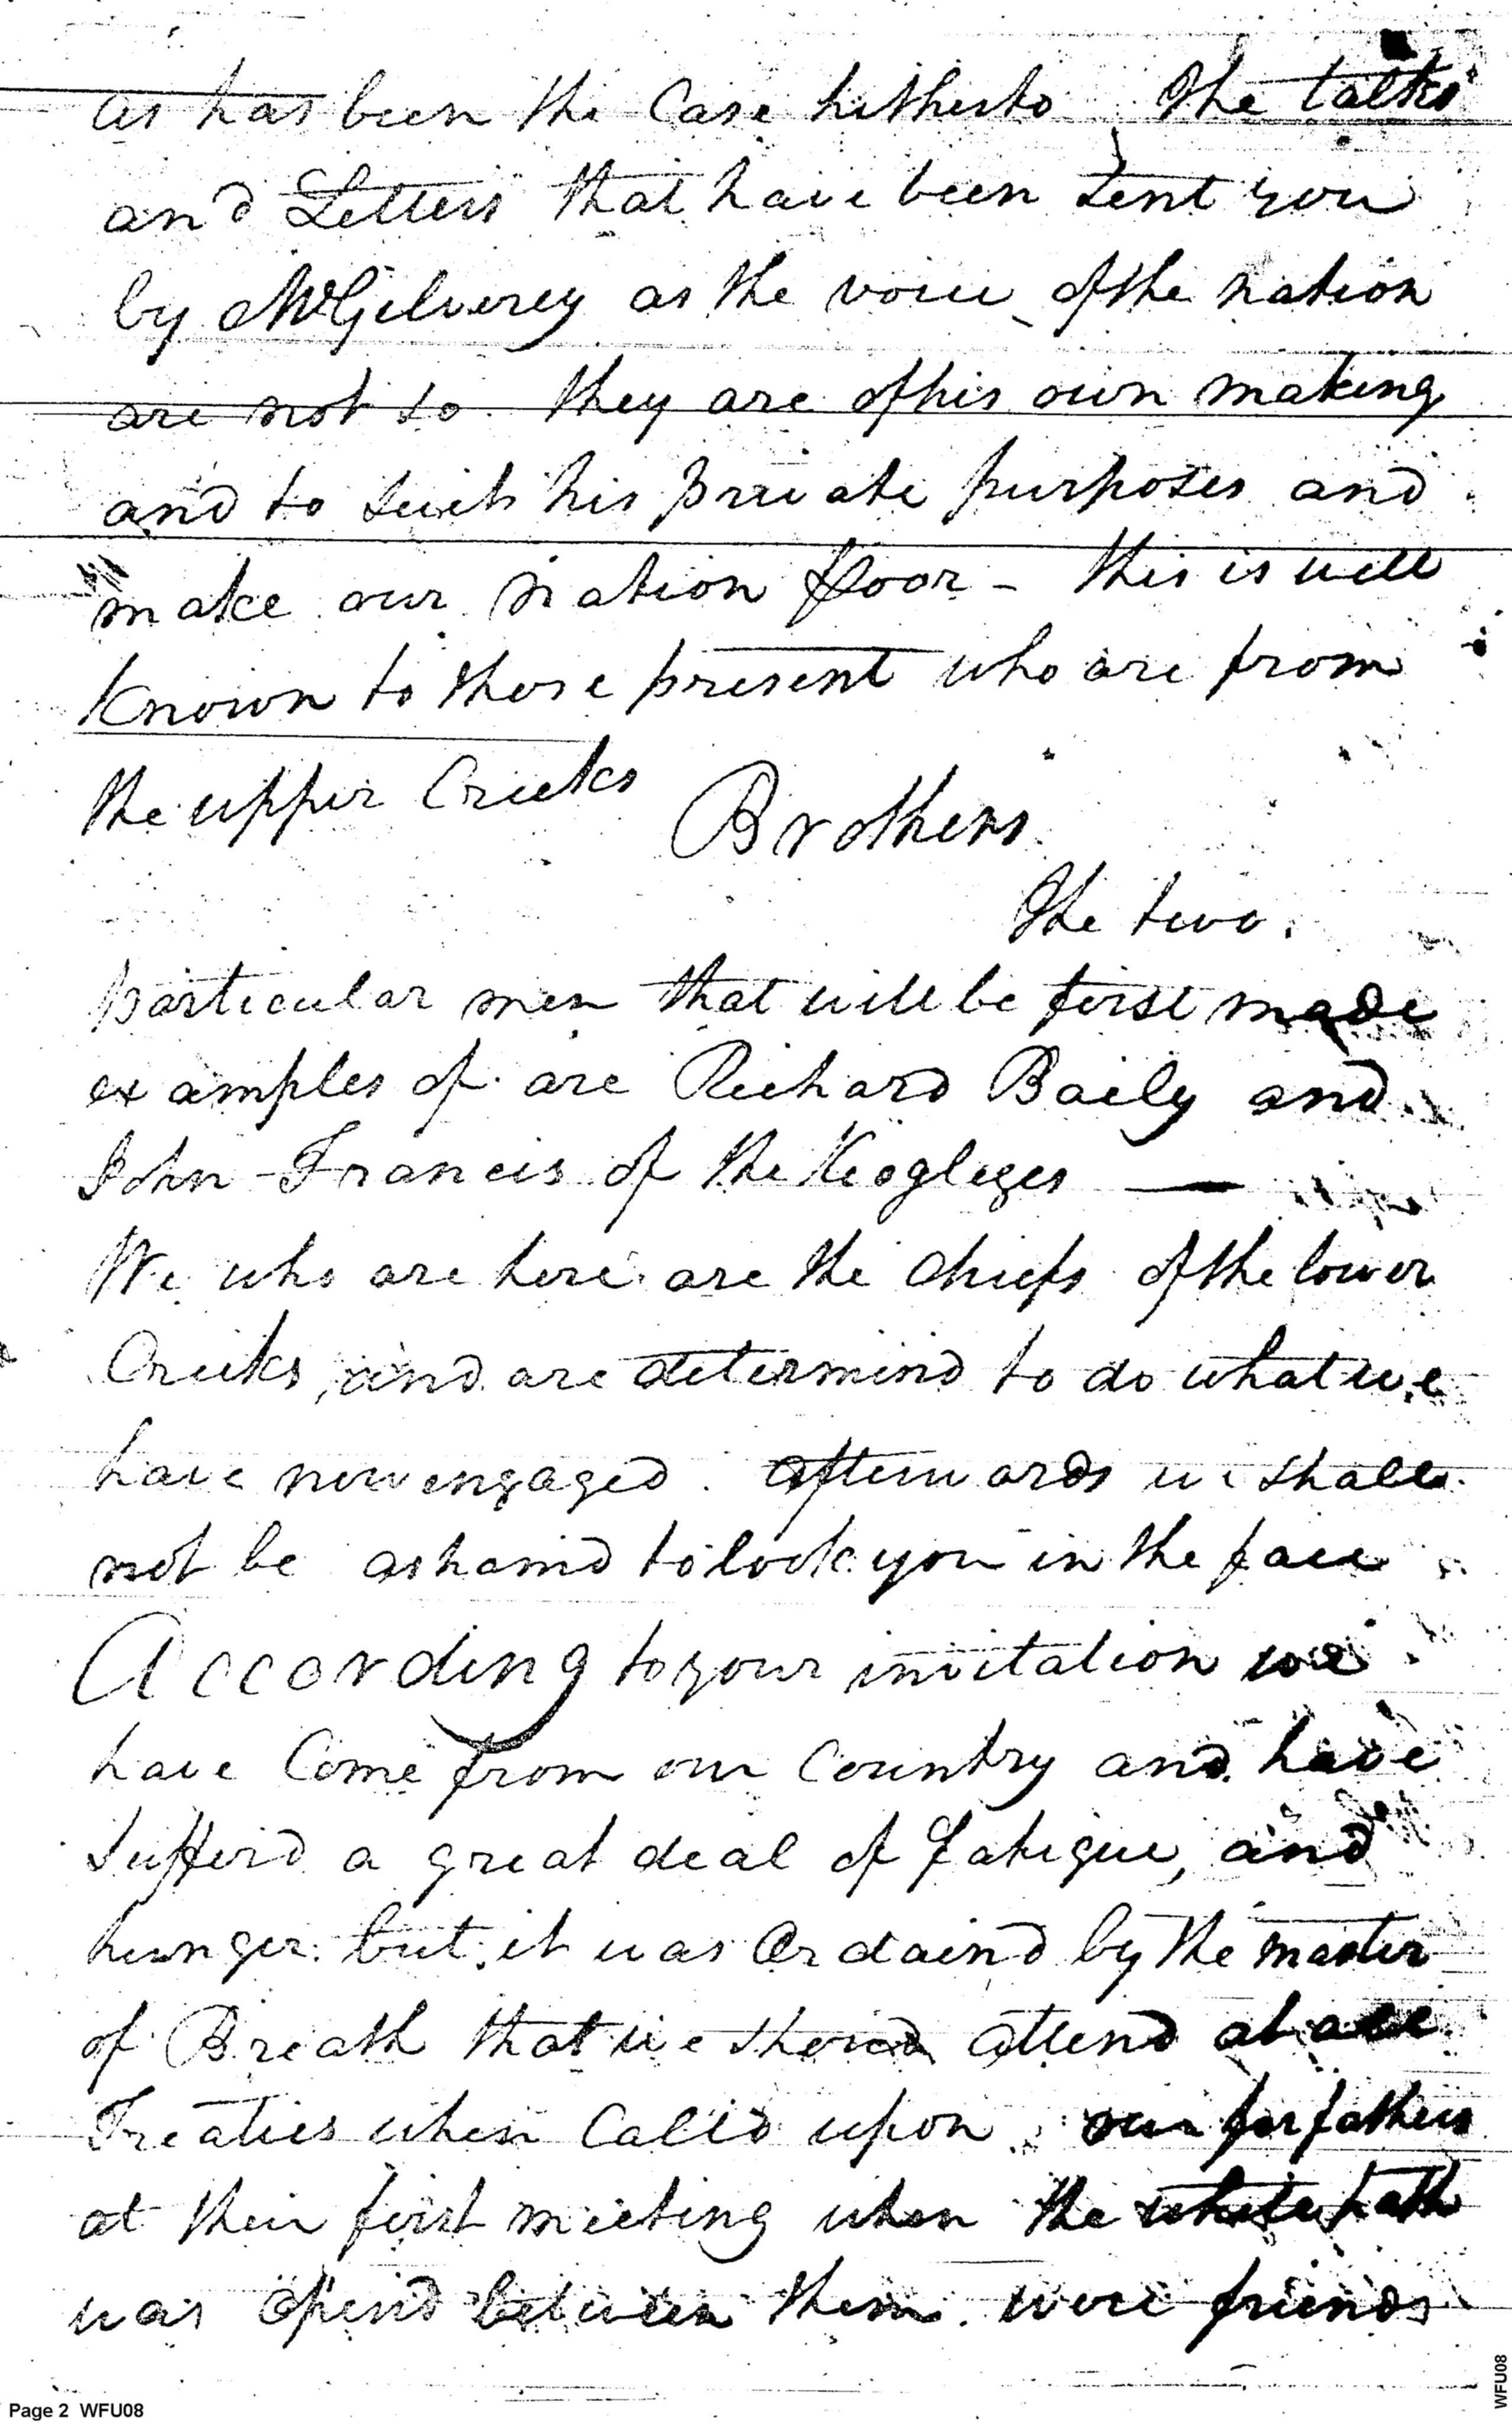 as has been the Case hitherto, the talks
and Letters that have been sent you
by McGilverey as the voice of the nation
are not so. they are of his own making
and to suit his private purposes and
make our nation poor - this is well
known to those present who are from
the upper Creeks
Brothers
the two
particular men that will be first made
examples of are Richard Baily and
John Francis of the
We who are here are the Chiefs of the lower
Creeks, and are determind to do what we
have now engaged. afterwards we shall
not be ashamd to look you in the face
According to your invitation we
have Come from our Country and have
sufferd a great deal of fatigue, and
hunger. but it was Ordaind by the master
of Breath that we shoud attend at all
Treaties when Calld upon. our forfathers
at their first meeting when the white path
was opend between them. were friends
Page 2 WFU08
WFU08